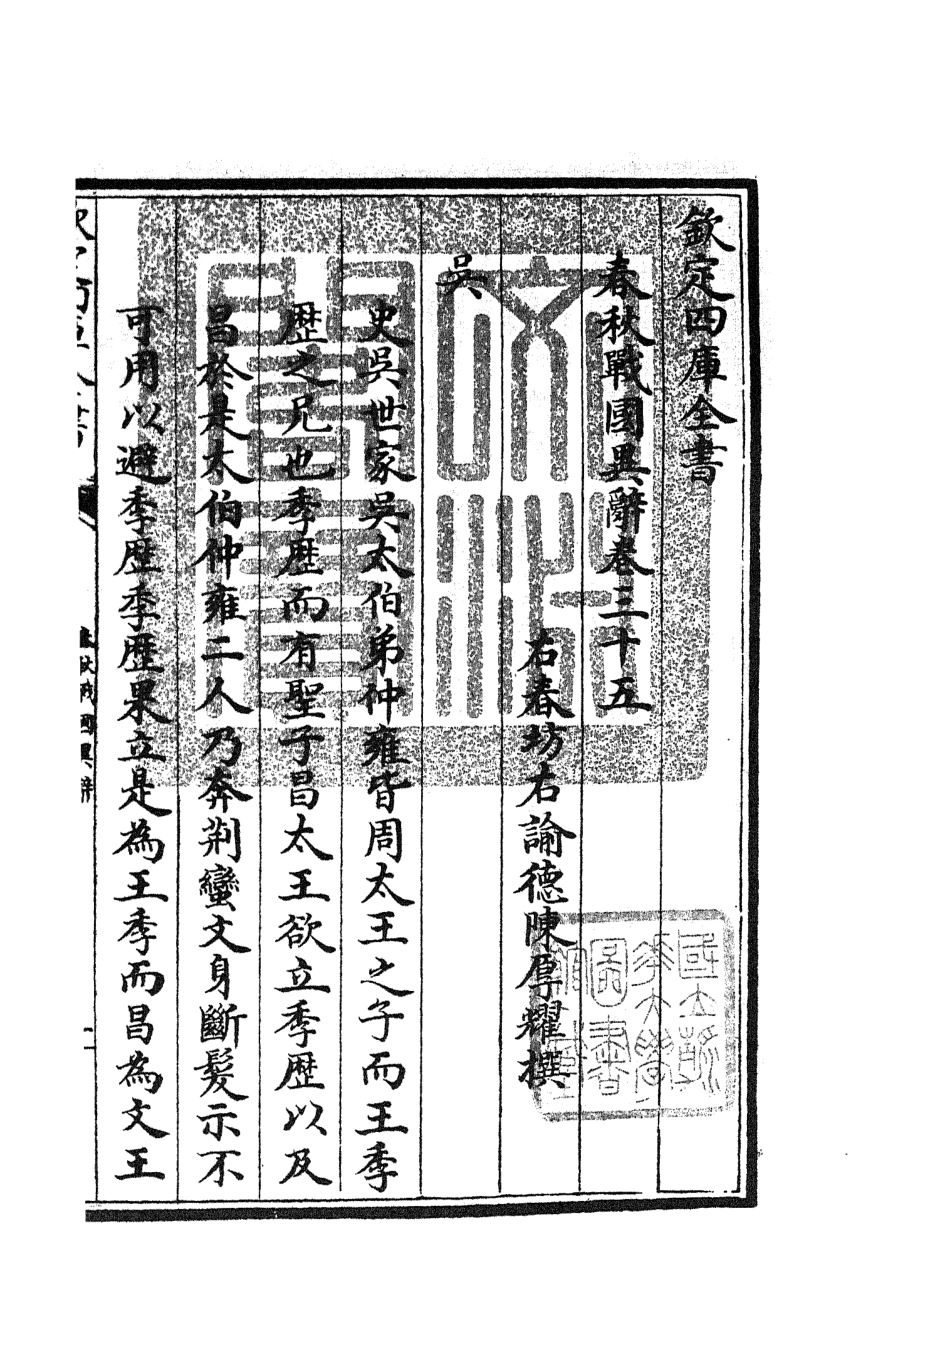 欽定四庫全書
春秋戰國異辭卷三十五
右春坊右諭德陳厚耀撰
吳
史吳世家吳太伯弟仲雍皆周太王之子而王季
歷之兄也季歷而有聖子昌太王欲立季歷以及
昌於是太伯仲雍二人乃奔荆蠻文身斷髮示不
可用以避季歷季歷果立是為王季而昌為文王
春秋戰國異辭